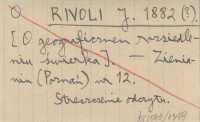 O RIVOLI J. 1882 (?).
[O geograficznem rozsiedle-
niu świerka]. — Ziemia-
nin (Poznań) nr 12.
Streszczenie odczytu.